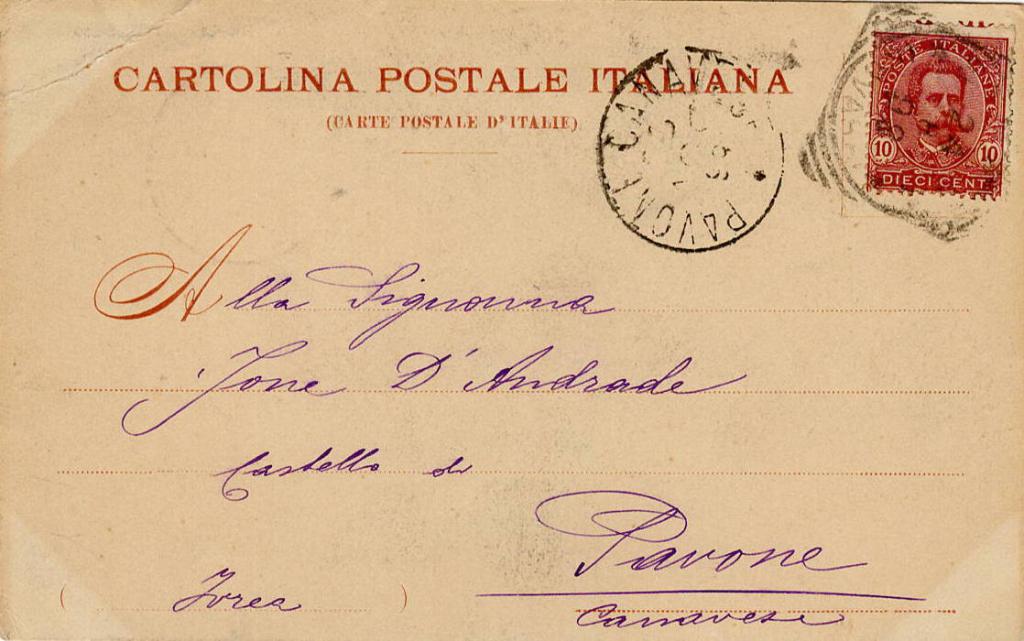 CARTOLINA POSTALE ITALIANA
(CARTE POSTALE D'ITALIE)
PAVONE CANAVESE
POSTE ITALIANE
10 10
DIECI CENT
Alla Signorina
Jone D'Andrade
Castello di
Pavone
(Ivrea)
Canavese